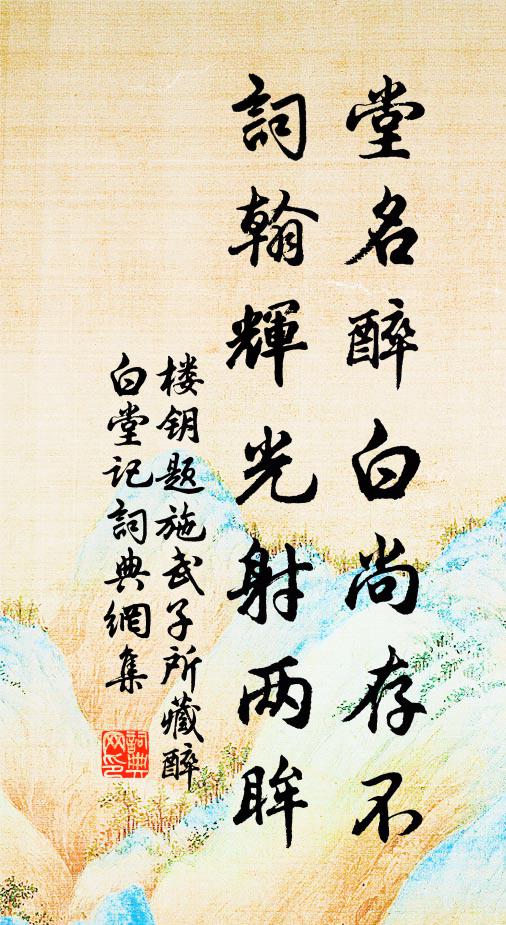 堂名醉白尚存不
詞翰輝光射两眸
楼钥题施武子所藏醉
白堂记詞典網集
詞典網印